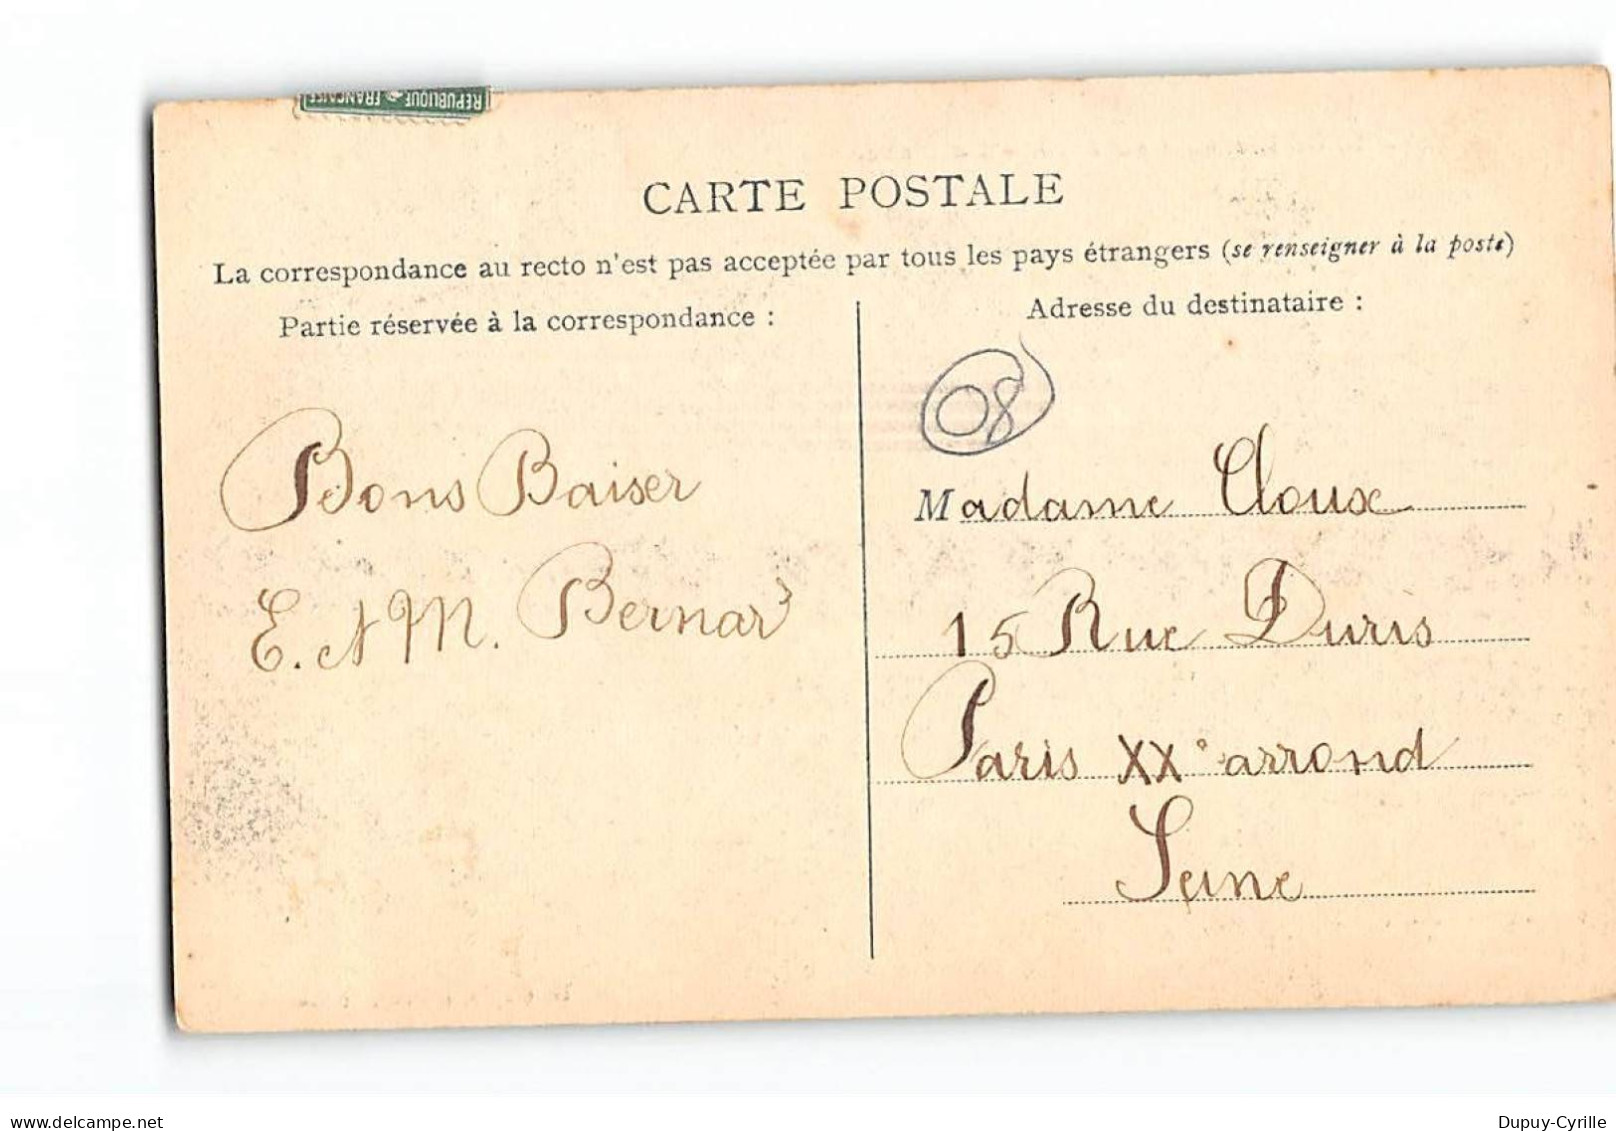 REPUBLIQUE FRANÇAISE
CARTE POSTALE
La correspondance au recto n'est pas acceptée par tous les pays étrangers (se renseigner à la poste)
Partie réservée à la correspondance :
Adresse du destinataire :
08
Bons Baiser
E. et M. Bernard
Madame Cloux
15 Rue Duris
Paris XXe arrond
Seine
www.delcampe.net
Dupuy-Cyrille